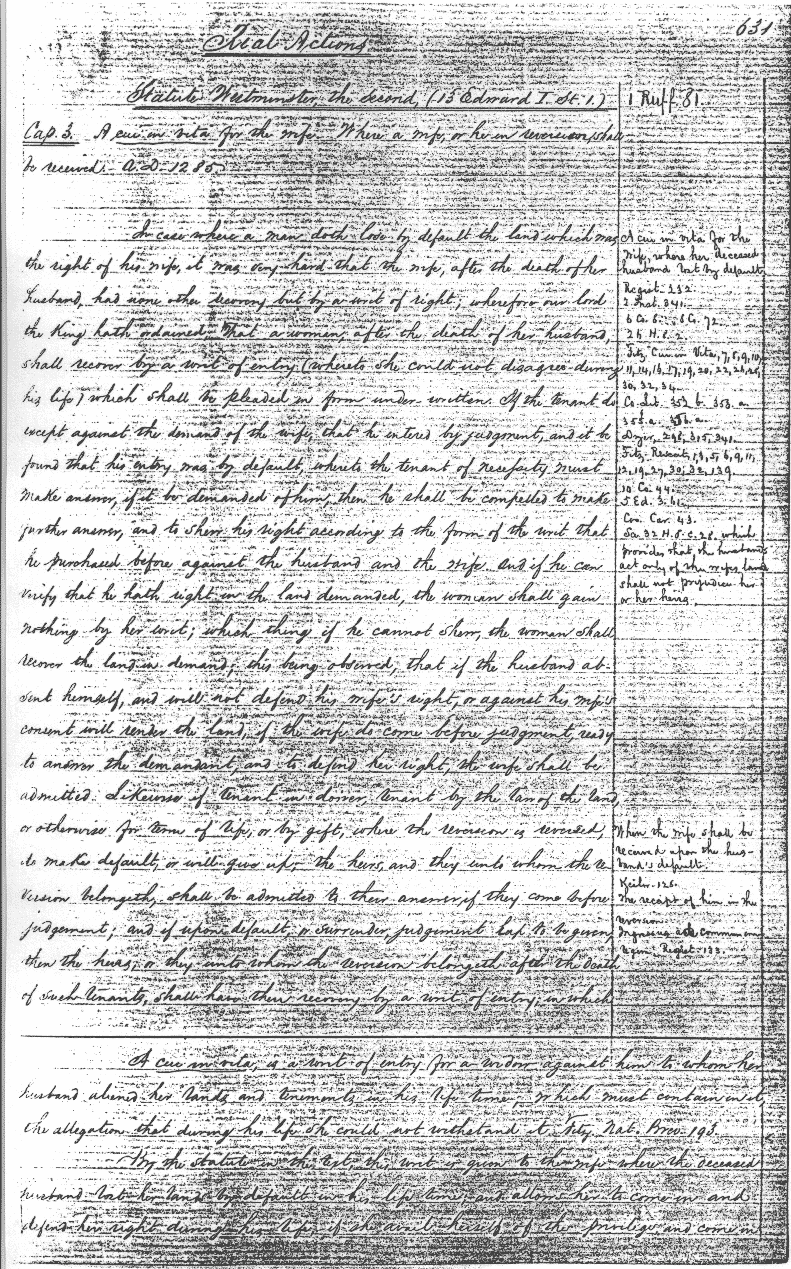 631
Real Actions
Statute Westminster, the Second, (13 Edward I. St. 1.)
1 Ruff. 81.
Cap. 3. A cui in vita for the wife. Where a wife, or he in reversion, shall
be received. A.D. 1285.
In case where a man doth lose by default the land which was
the right of his wife, it was very hard that the wife, after the death of her
husband, had none other recovery but by a writ of right; wherefore our lord
the King hath ordained, That a woman, after the death of her husband,
shall recover by a writ of entry (whereto she could not disagree during
his life) which shall be pleaded in form under-written. If the tenant do
except against the demand of the wife, that he entered by judgment, and it be
found that his entry was by default, whereto the tenant of necessity must
make answer, if it be demanded of him, then he shall be compelled to make
further answer, and to shew his right according to the form of the writ that
he purchased before against the husband and the wife. And if he can
verify that he hath right in the land demanded, the woman shall gain
nothing by her writ; which thing if he cannot shew, the woman shall
recover the land in demand; this being observed, that if the husband ab-
sent himself, and will not defend his wife's right, or against his wife's
consent will render the land, if the wife do come before judgment, ready
to answer the demandant, and to defend her right, the wife shall be
admitted. Likewise if tenant in dower, tenant by the law of the land,
or otherwise for term of life, or by gift, where the reversion is reserved,
do make default, or will give up; the heirs, and they unto whom the re-
version belongeth, shall be admitted to their answer, if they come before
judgement; and if upon default, or surrender, judgement hap to be given,
then the heirs, or they unto whom the reversion belongeth after the death
of such tenants, shall have their recovery by a writ of entry, in which
A cui in vita for the
Wife, where her deceased
husband lost by default.
Regist. 232.
2 Inst. 341.
6 Co. 8. 8 Co. 72.
26 H. 8. 2.
Fitz. Cui in Vita, 7, 8, 9, 10,
11, 14, 16, 17, 19, 20, 22, 25, 26,
30, 32, 34.
Co. Lit. 352. b. 353. a.
355. a. 356. a.
Dyer, 298, 315, 341.
Fitz. Resceit, 1, 3, 5, 6, 9, 11,
12, 19, 27, 30, 32, 139.
10 Co. 44.
5 Ed. 3. 61.
Cro. Car. 43.
32 H. 8. c. 28. which
provides that, the husbands
act only of the wifes land
shall not prejudice her
or her heirs.
When the wife shall be
received upon the hus-
band's default.
Keilw. 126.
The receipt of him in the
reversion.
Ingressus ad Communem
Legem, Regist. 133.
A cui in vita, is a writ of entry for a widow against him to whom her
husband aliened her lands and tenements in his life time; which must contain in it,
the allegation that during his life she could not withstand it. Fitz. Nat. Brev. 193.
By the statute in the text, this writ is given to the wife where the deceased
husband lost her lands by default in his life time; and allows her to come in and
defend her right during his life, if she avail herself of the privilege and come in